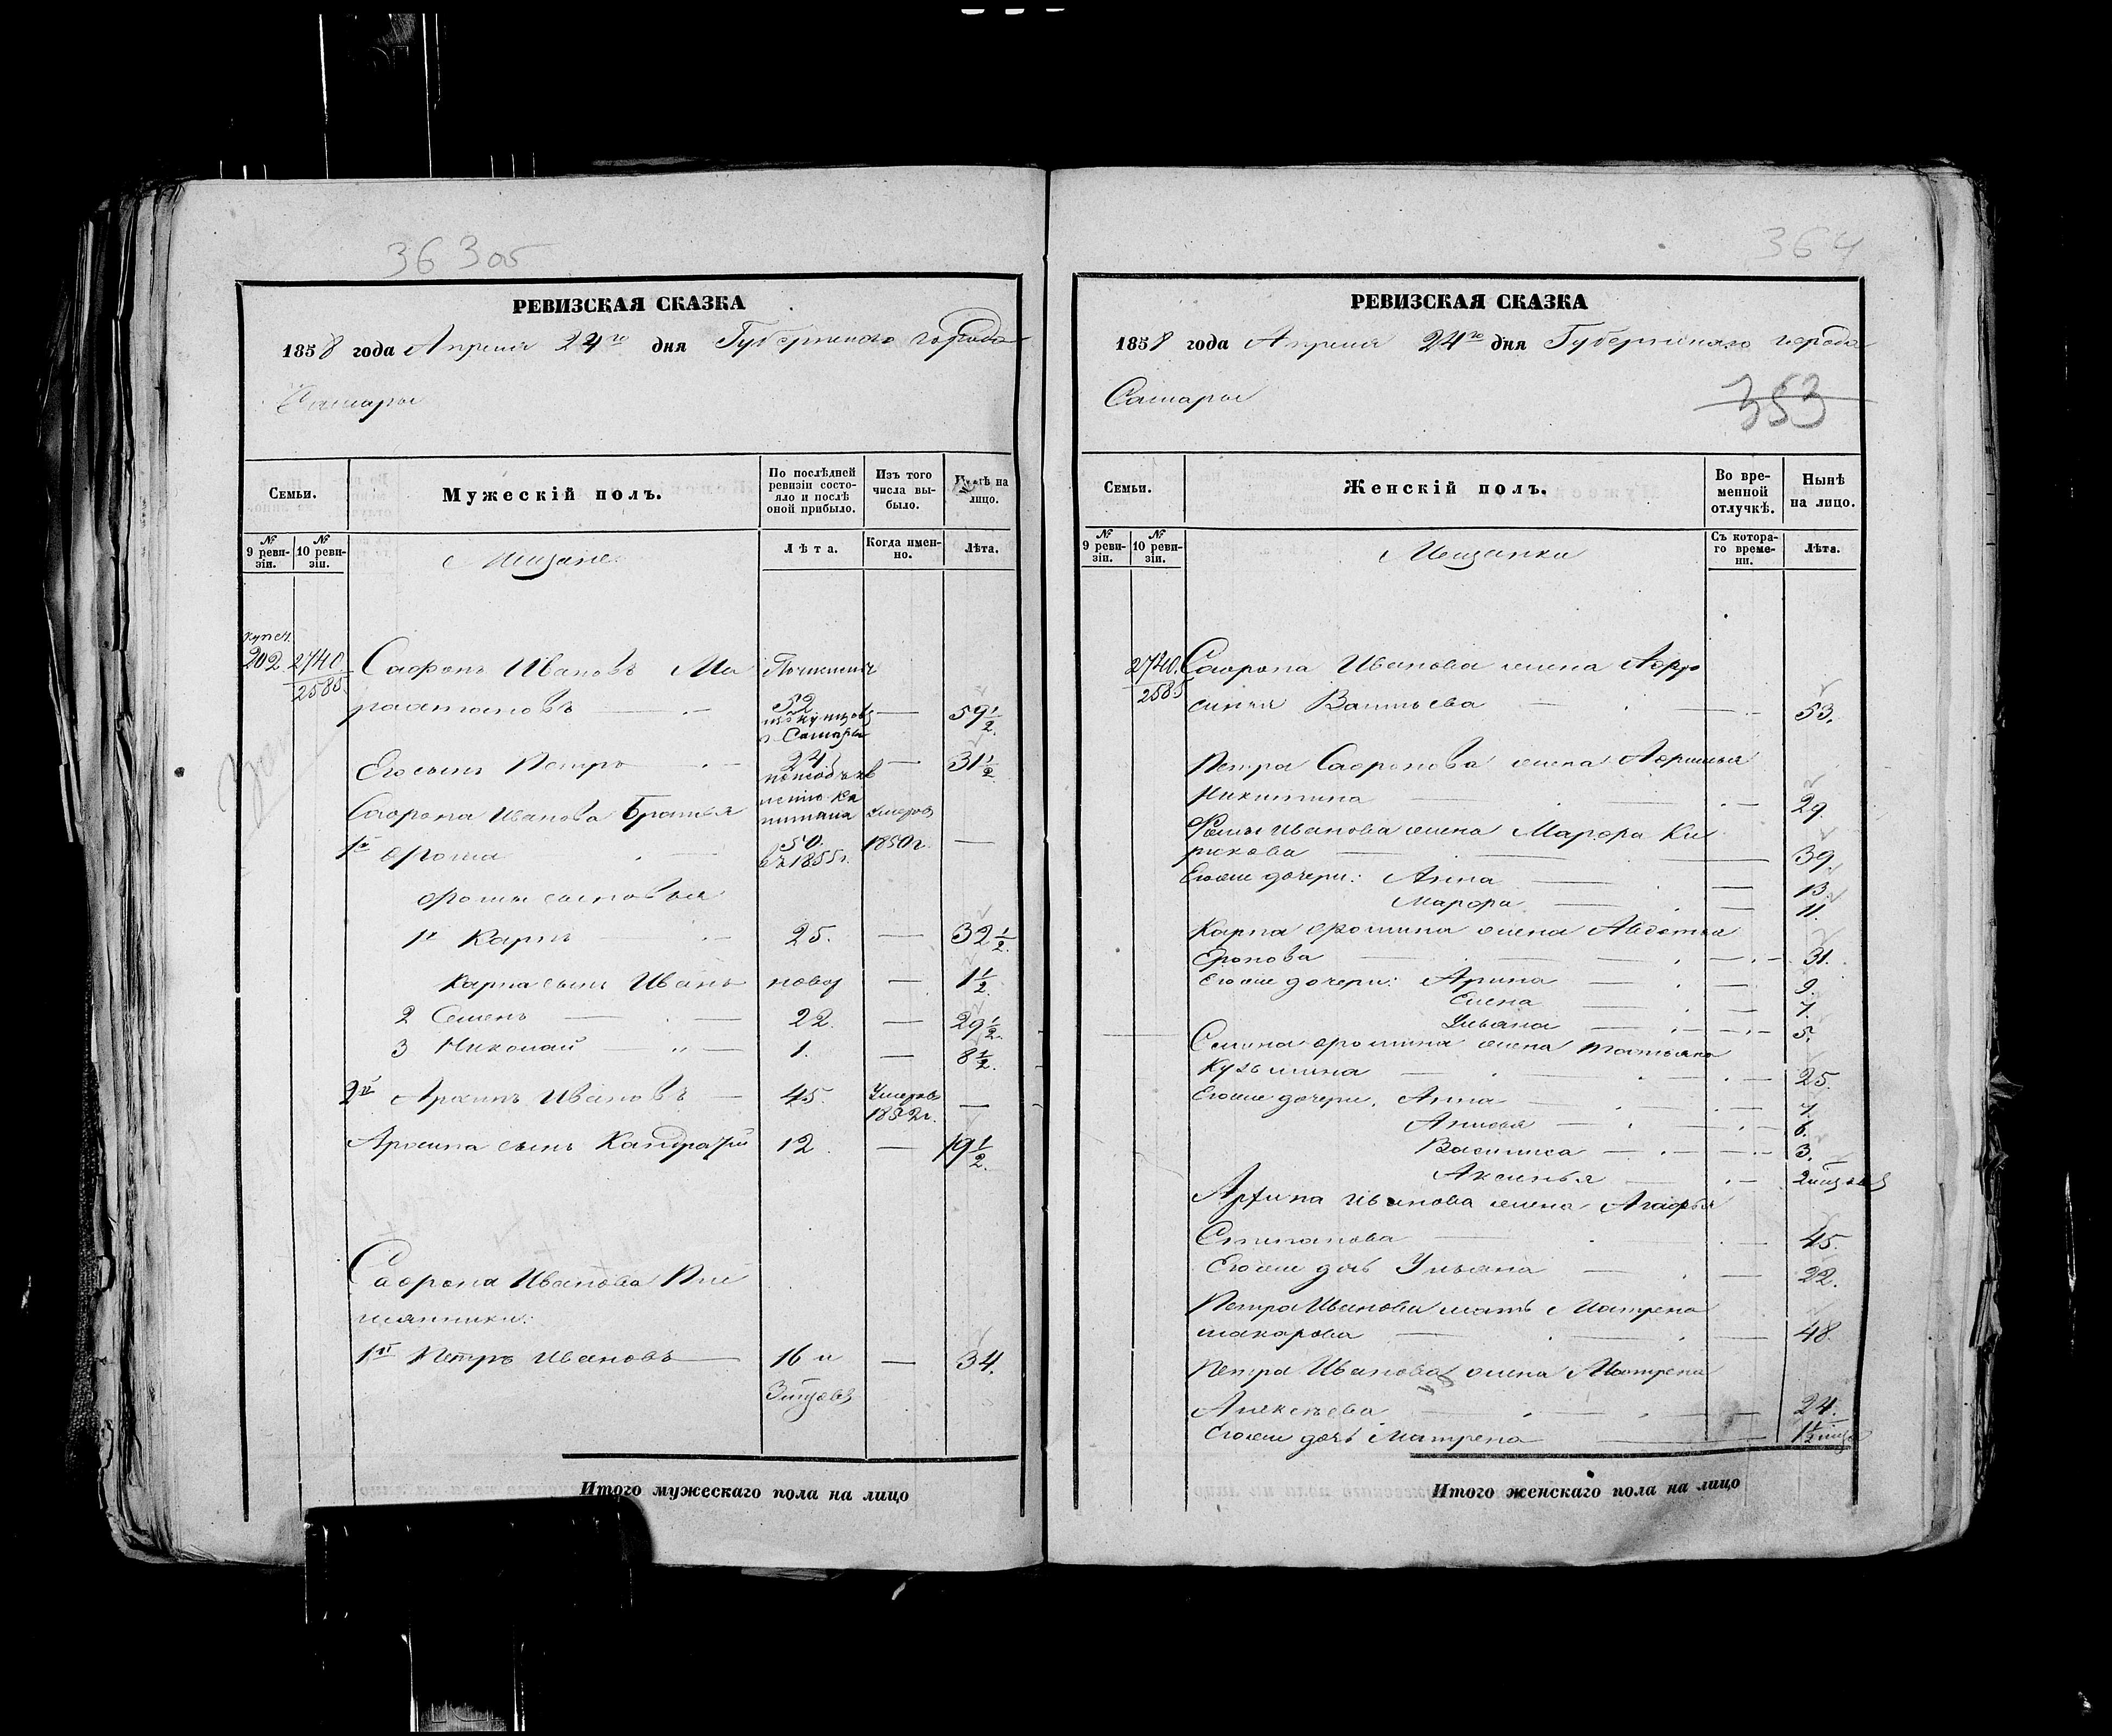 363об
РЕВИЗСКАЯ СКАЗКА
1858 года Апреля 24го дня Губернскаго города
Самары
Семьи.
Мужескій полъ.
По послѣдней ревизіи состояло и послѣ оной прибыло.
Изъ того числа выбыло.
на лицо.
№ 9 ревизіи.
№ 10 ревизіи.
Мещане
Лѣта.
Когда именно.
Лѣта.
купеч.
202. 2740. Сафронъ Ивановъ
2585.
52
изъ купцовъ
г. Самары
59 1/2.
Его сынъ Петръ 24. 31 1/2
Сафрона Иванова братья
питала умеръ
1й Фома 50. 1850г.
въ 1855г.
Фомы сыновья
1й Карпъ 25. 32 1/2.
Карпа сынъ Иванъ новор 1 1/2.
2 Семенъ 22. 29 1/2.
3 Николай 1. 8 1/2.
2й Архипъ Ивановъ 45. Умеръ
1852г.
Архипа сынъ Кандратiй 12. 19 1/2.
Сафрона Иванова Пле
мянники:
1й Петръ Ивановъ 16 и 34.
364
РЕВИЗСКАЯ СКАЗКА
1858 года Апреля 24го дня Губернскаго города
Самары
353
Семьи.
Женскій полъ.
Во временной отлучкѣ.
Нынѣ на лицо.
№ 9 ревизіи.
№ 10 ревизіи.
Мещанки
Съ котораго времени.
Лѣта.
2740. Сафрона Иванова жена Афро
2585
синья Васильева 53.
Петра Сафронова жена Афимья
Никитина 29.
Фомы Иванова жена Марфа Ки
рикова 39.
Его же дочери: Анна 13.
Марфа 11.
Карпа Фомина жена Авдотья
31.
Его же дочери: Арина 9.
Елена 7.
Ульяна 5.
Семена Фомина жена Татьяна
Кузьмина 25.
Его же дочери. Анна 7.
Анисья 6.
Василиса 3.
Аксинья
Архипа Иванова жена Агафья
Степанова 45.
Его же дочь Ульяна 22.
Петра Иванова мать Матрена
Макарова 48.
Петра Иванова жена Матрена
Алексѣева 24.
Его же дочь Матрена 1 1/2
Итого мужескаго пола на лицо
Итого женскаго пола на лицо